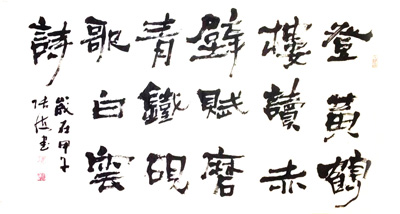 登黄鶴
樓讀赤
壁賦磨
青鐵硯
歌白雲
詩
歲在甲子
張海書